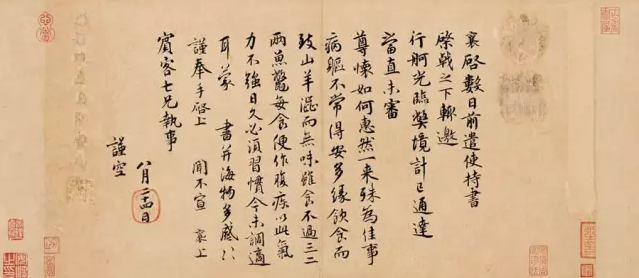 襄啓數日前遣使持書
棨戟之下輒邀
行舸光臨弊境計已通達
當直未審
尊悚如何惠然一来殊為佳事
病軀不常得安多緣飲食而
致山羊澀而無味雖食不過三二
兩魚鱉每食便作腹疾以此氣
力不強日久必須習慣今未調適
耳蒙 書并海物多感〻
謹奉手啓上 聞不宣 襄上
賓客七兄執事
八月二十四日
謹空